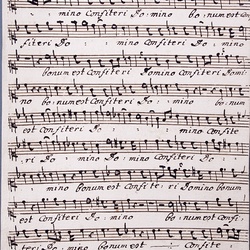 mino Confiteri Do: mino bo: num est co
fiteri Do: mino Confiteri Do: mino
bonum est Confiteri Domino Confiteri Domi
no bo: num est Confiteri Do: mino bo: num
est Confiteri Do: mino Confite
:ri Do: mino Do: mino Confiteri Do:
mino bonum est Confite: ri Domino bonum
est Confiteri Do: mino bo: num est Confi:
teri Do: mino bonum est Confite